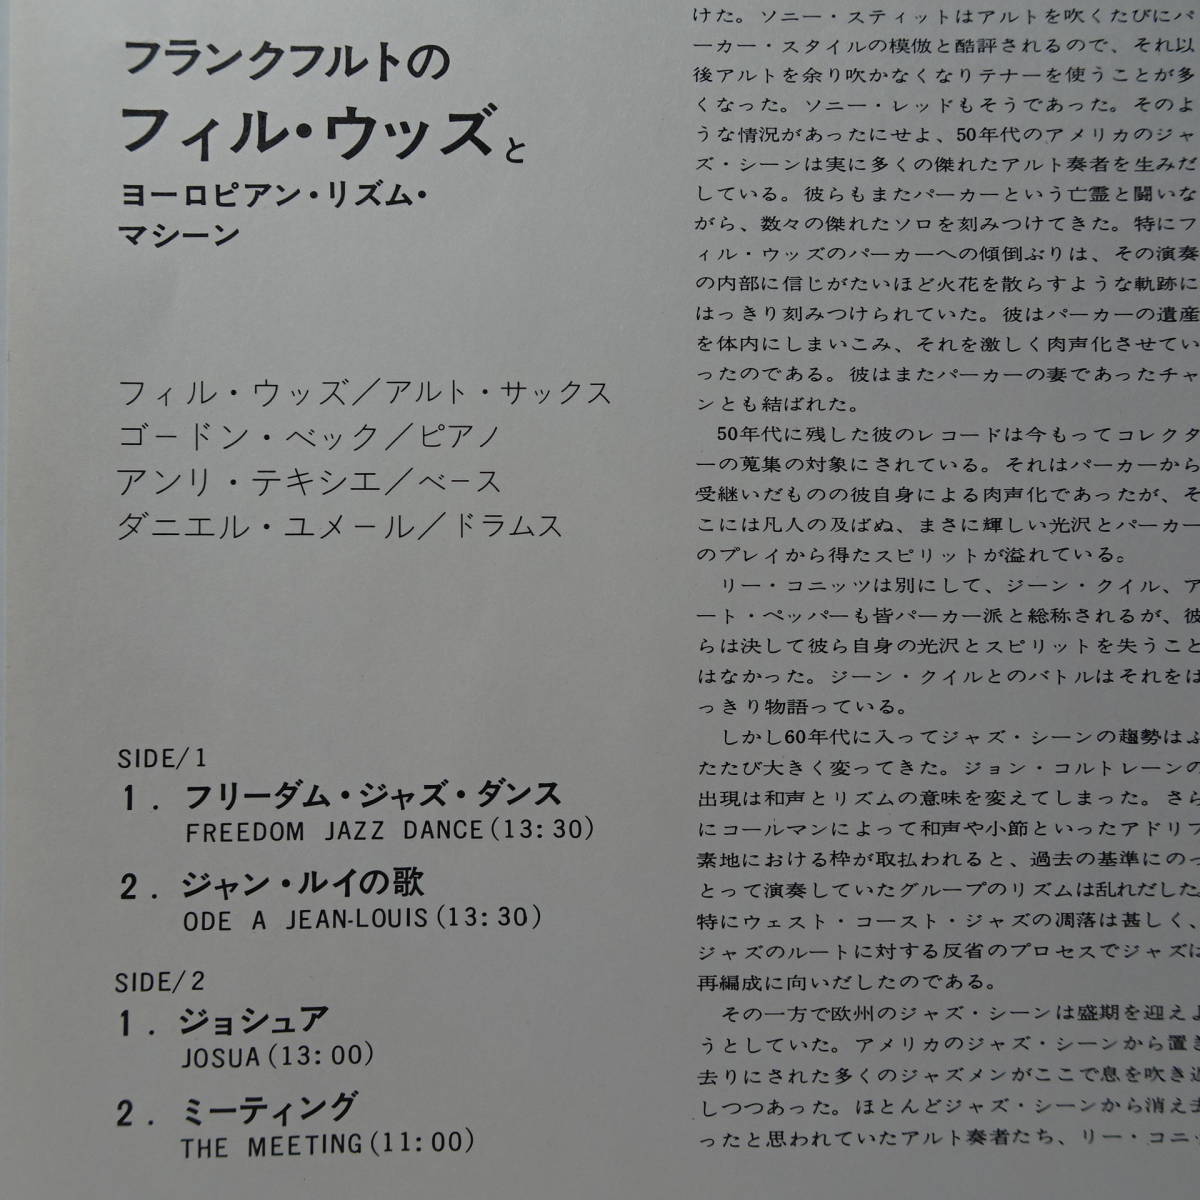 フランクフルトの
フィル・ウッズと
ヨーロピアン・リズム・
マシーン
フィル・ウッズ/アルト・サックス
ゴードン・ベック/ピアノ
アンリ・テキシエ/ベース
ダニエル・ユメール/ドラムス
SIDE/1
1. フリーダム・ジャズ・ダンス
FREEDOM JAZZ DANCE(13:30)
2. ジャン・ルイの歌
ODE A JEAN-LOUIS(13:30)
SIDE/2
1. ジョシュア
JOSUA(13:00)
2. ミーティング
THE MEETING(11:00)
けた。ソニー・スティットはアルトを吹くたびにパ
ーカー・スタイルの模倣と酷評されるので、それ以
後アルトを余り吹かなくなりテナーを使うことが多
くなった。ソニー・レッドもそうであった。そのよ
うな情況があったにせよ、50年代のアメリカのジャ
ズ・シーンは実に多くの傑れたアルト奏者を生みだ
している。彼らもまたパーカーという亡霊と闘いな
がら、数々の傑れたソロを刻みつけてきた。特にフ
ィル・ウッズのパーカーへの傾倒ぶりは、その演奏
の内部に信じがたいほど火花を散らすような軌跡に
はっきり刻みつけられていた。彼はパーカーの遺産
を体内にしまいこみ、それを激しく肉声化させてい
ったのである。彼はまたパーカーの妻であったチャ
ンとも結ばれた。
50年代に残した彼のレコードは今もってコレクタ
ーの蒐集の対象にされている。それはパーカーから
受継いだものの彼自身による肉声化であったが、そ
こには凡人の及ばぬ、まさに輝しい光沢とパーカー
のプレイから得たスピリットが溢れている。
リー・コニッツは別にして、ジーン・クイル、ア
ート・ペッパーも皆パーカー派と総称されるが、彼
らは決して彼ら自身の光沢とスピリットを失うこと
はなかった。ジーン・クイルとのバトルはそれをは
っきり物語っている。
しかし60年代に入ってジャズ・シーンの趨勢はふ
たたび大きく変ってきた。ジョン・コルトレーンの
出現は和声とリズムの意味を変えてしまった。さら
にコールマンによって和声や小節といったアドリブ
素地における枠が取払われると、過去の基準にのっ
とって演奏していたグループのリズムは乱れだした。
特にウェスト・コースト・ジャズの凋落は甚しく、
ジャズのルートに対する反省のプロセスでジャズは
再編成に向いだしたのである。
その一方で欧州のジャズ・シーンは盛期を迎えよ
うとしていた。アメリカのジャズ・シーンから置き
去りにされた多くのジャズメンがここで息を吹き返
しつつあった。ほとんどジャズ・シーンから消え去
ったと思われていたアルト奏者たち、リー・コニッ